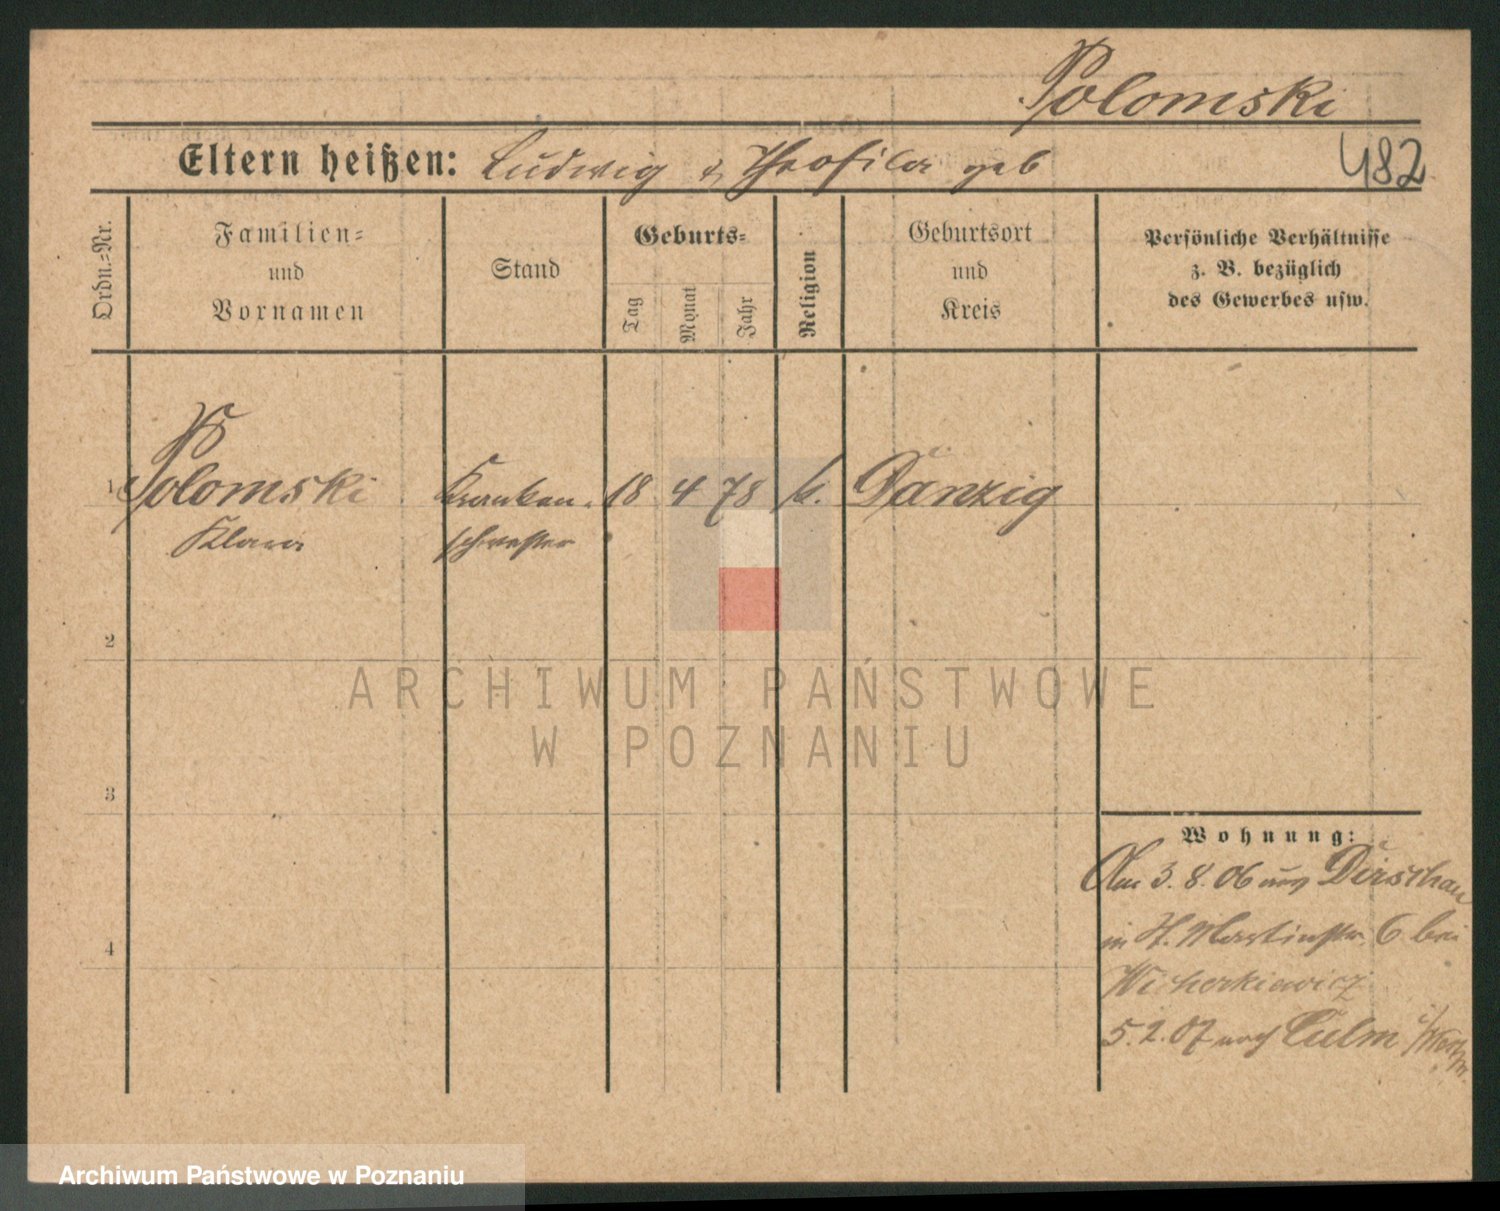 Polomski
Eltern heißen: Ludwig & Theofila geb
482
Ordn.=Nr.
Familien=
und
Vornamen
Stand
Geburts=
Tag
Monat
Jahr
Religion
Geburtsort
und
Kreis
Persönliche Verhältnisse
z. B. bezüglich
des Gewerbes usw.
1 Polomski Kranken- 18 4 78 k. Danzig
Klara schwester
2
3
4
Wohnung:
Am 3. 8. 06 aus Dirschau
in St. Martinstr. 6 bei
Wicherkiewicz
5. 2. 07 nach Culm i/Westpr.
ARCHIWUM PAŃSTWOWE
W POZNANIU
Archiwum Państwowe w Poznaniu